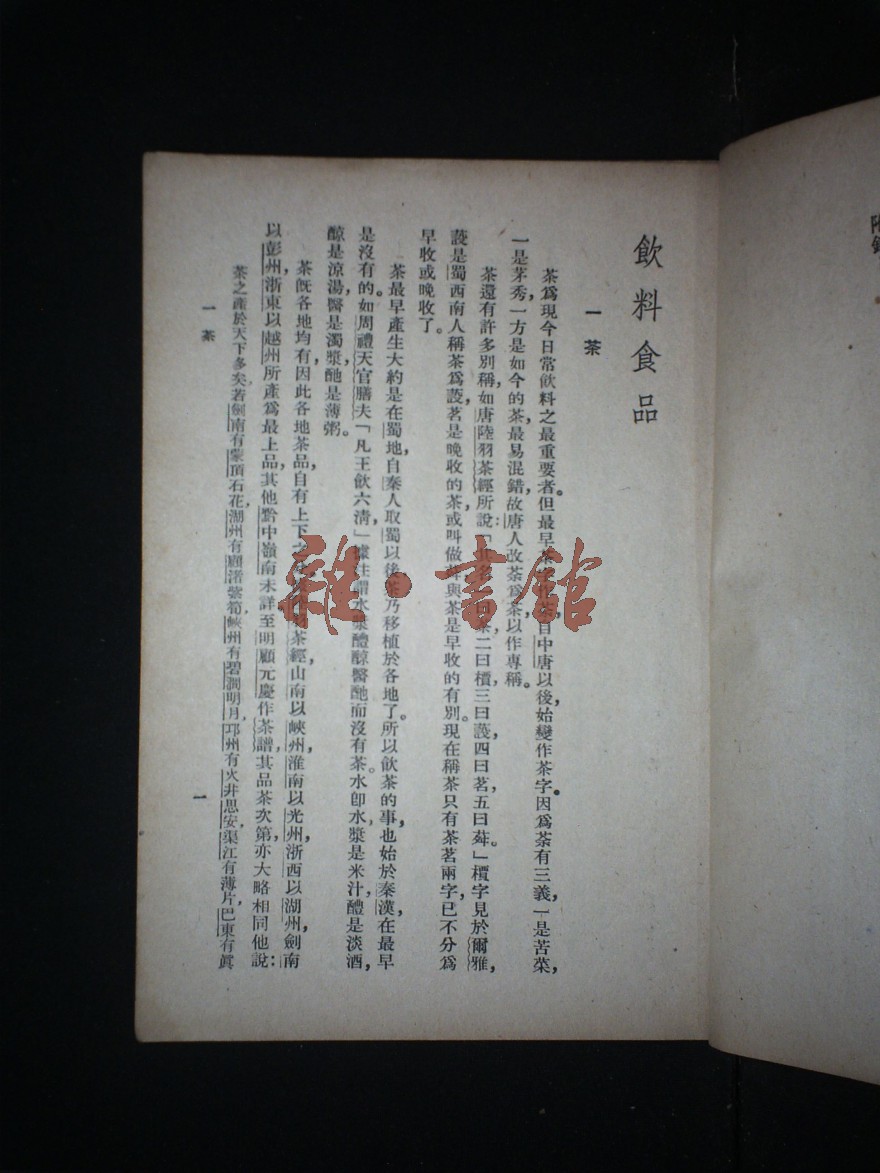 附錄
飲料食品
一 茶
茶爲現今日常飲料之最重要者。但最早茶 作荼。自中唐以後，始變作茶字。因爲荼有三義，一是苦菜，
一是茅秀，一方是如今的茶，最易混錯，故唐人改荼爲茶，以作專稱。
茶還有許多別稱，如唐陸羽茶經所說：「其名一曰茶，二曰檟，三曰蔎，四曰茗，五曰荈。」檟字見於爾雅，
蔎是蜀西南人稱茶爲蔎，茗是晚收的茶，或叫做荈，與茶是早收的有別。現在稱茶只有茶茗兩字，已不分爲
早收或晚收了。
茶最早產生大約是在蜀地，自秦人取蜀以後，茶乃移植於各地了。所以飲茶的事也始於秦漢，在最早
是沒有的。如周禮天官膳夫「凡王飲六清，」據注謂水漿醴醇醫酏，而沒有茶。水卽水，漿是米汁，醴是淡酒，
醇是涼湯，醫是濁漿，酏是薄粥。
茶旣各地均有，因此各地茶品，自有上下之 茶經，山南以峽州，淮南以光州，浙西以湖州，劍南
以彭州，浙東以越州所產爲最上品，其他黔中嶺南未詳。至明顧元慶作茶譜，其品茶次第，亦大略相同。他說：
茶之產於天下多矣。若劍南有蒙頂石花，湖州有顧渚紫筍，峽州有碧澗明月，邛州有火井思安，渠江有薄片，巴東有眞
一 茶
一
雜·書館